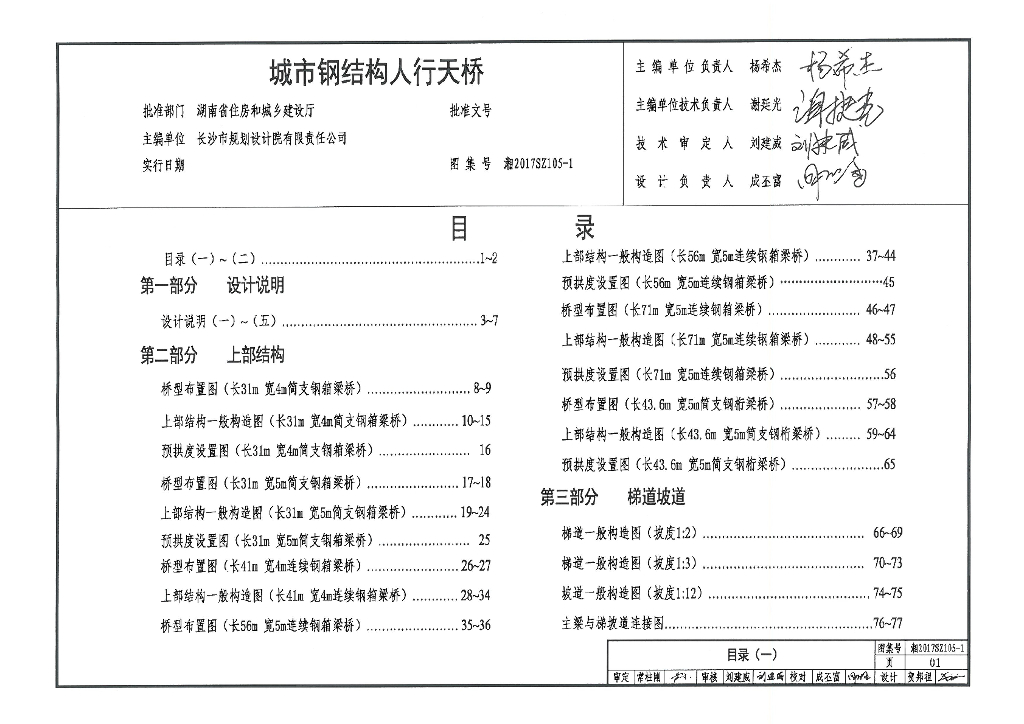 城市钢结构人行天桥
批准部门 湖南省住房和城乡建设厅 批准文号
主编单位 长沙市规划设计院有限责任公司
实行日期 图集号 湘2017SZ105-1
主编单位负责人 杨希杰
主编单位技术负责人 谢延光
技术审定人 刘建威
设计负责人 成丕富
目 录
目录（一）~（二）...1~2
第一部分 设计说明
设计说明（一）~（五）...3~7
第二部分 上部结构
桥型布置图（长31m 宽4m简支钢箱梁桥）...8~9
上部结构一般构造图（长31m 宽4m简支钢箱梁桥）...10~15
预拱度设置图（长31m 宽4m简支钢箱梁桥）...16
桥型布置图（长31m 宽5m简支钢箱梁桥）...17~18
上部结构一般构造图（长31m 宽5m简支钢箱梁桥）...19~24
预拱度设置图（长31m 宽5m简支钢箱梁桥）...25
桥型布置图（长41m 宽4m连续钢箱梁桥）...26~27
上部结构一般构造图（长41m 宽4m连续钢箱梁桥）...28~34
桥型布置图（长56m 宽5m连续钢箱梁桥）...35~36
上部结构一般构造图（长56m 宽5m连续钢箱梁桥）...37~44
预拱度设置图（长56m 宽5m连续钢箱梁桥）...45
桥型布置图（长71m 宽5m连续钢箱梁桥）...46~47
上部结构一般构造图（长71m 宽5m连续钢箱梁桥）...48~55
预拱度设置图（长71m 宽5m连续钢箱梁桥）...56
桥型布置图（长43.6m 宽5m简支钢桁梁桥）...57~58
上部结构一般构造图（长43.6m 宽5m简支钢桁梁桥）...59~64
预拱度设置图（长43.6m 宽5m简支钢桁梁桥）...65
第三部分 梯道坡道
梯道一般构造图（坡度1:2）...66~69
梯道一般构造图（坡度1:3）...70~73
坡道一般构造图（坡度1:12）...74~75
主梁与梯坡道连接图...76~77
目录（一）
图集号 湘2017SZ105-1
页 01
审定 审核 刘建威 校对 成丕富 设计